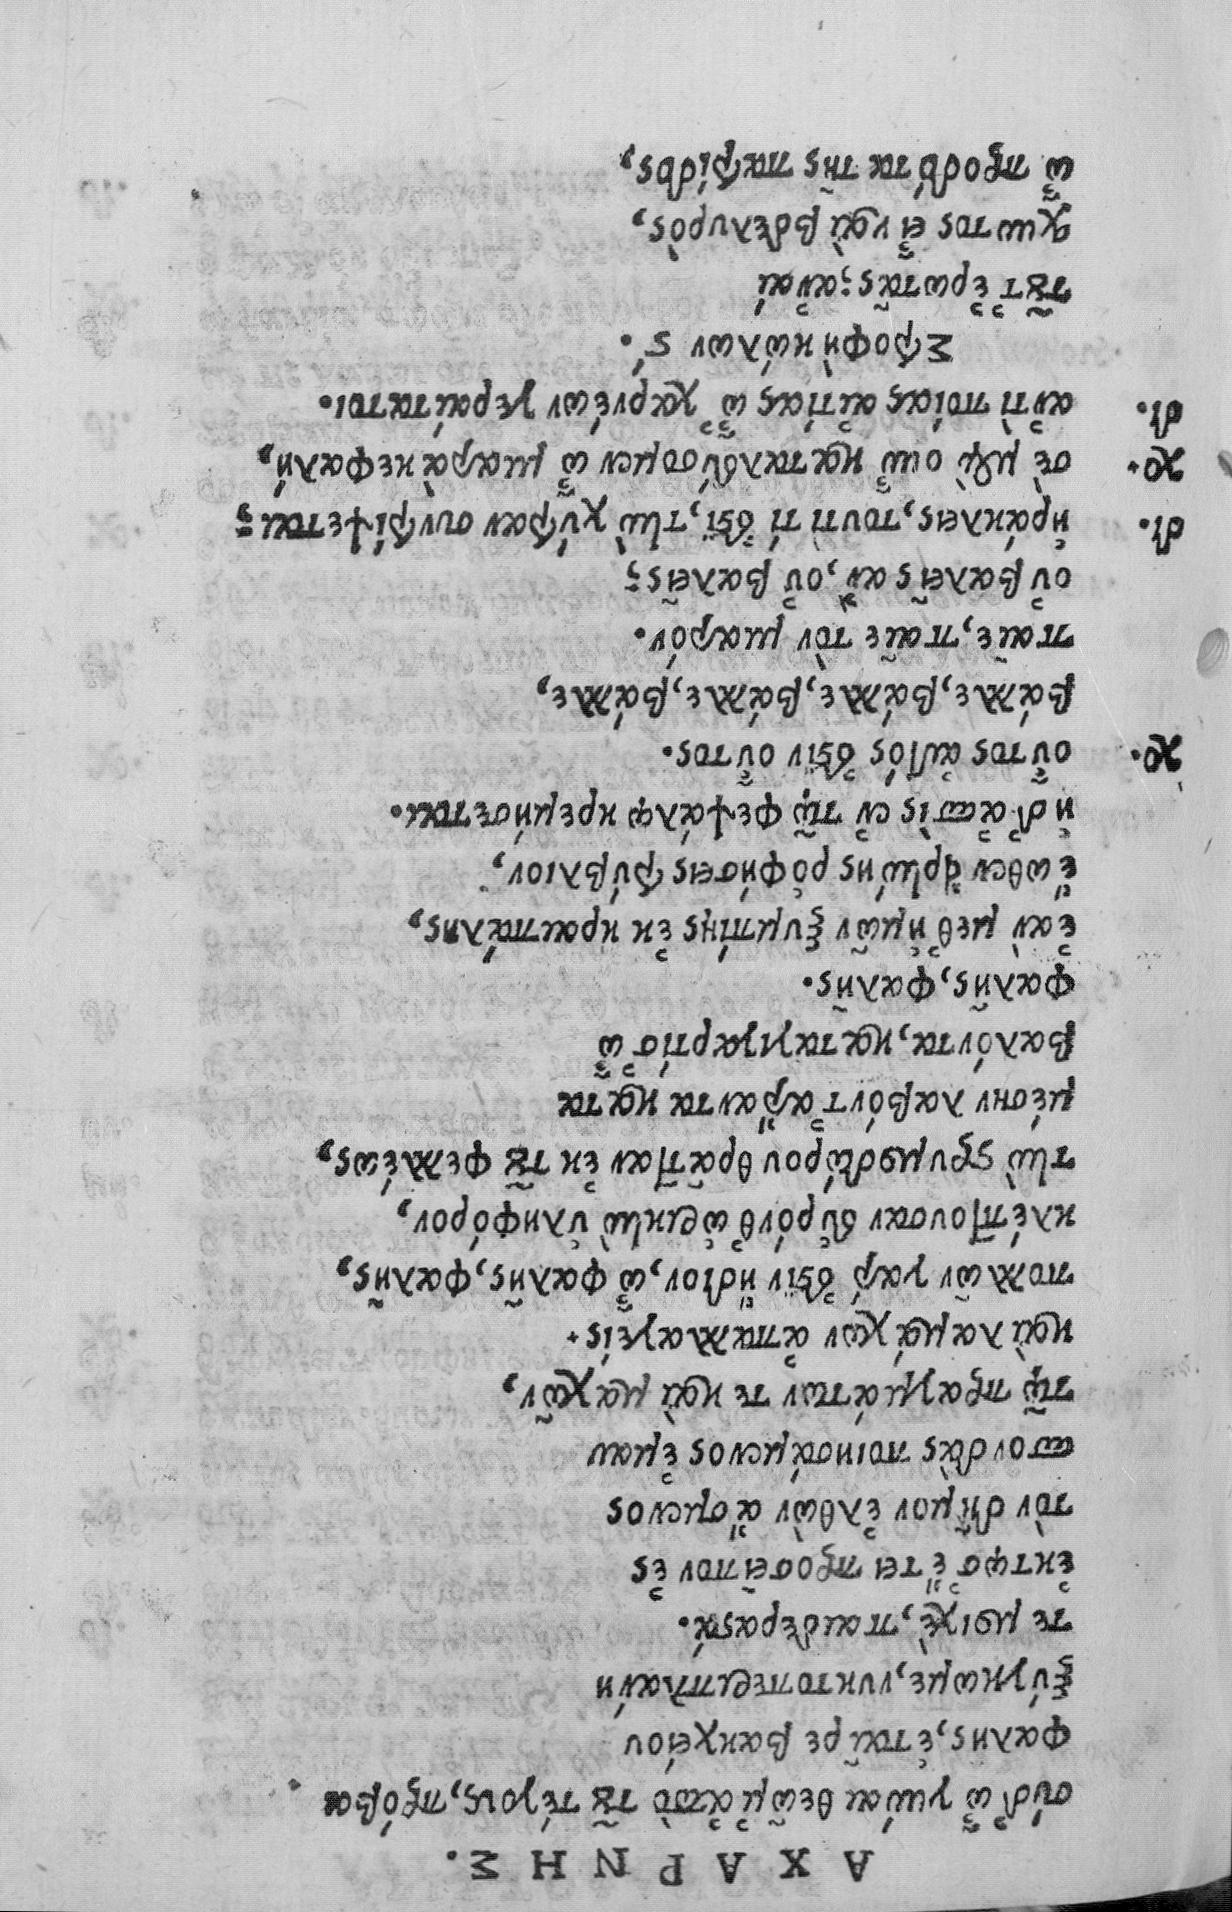 ΑΧΑΡΝΗΣ.
σύδ' ὦ γύναι θεῶ μ' ἀπὸ τοῦ τέγους, πρόβα
φαλης, ἑταῖρε βακχείου
ξύγκωμε, νυκτοπεριπλάνη
τε μοιχὲ, παιδεραστά.
ἕκτῳ σ' ἔτει προσεῖπον ἐς
τὸν δῆμον ἐλθὼν ἄσμενος
σπονδὰς ποιησάμενος ἐμαυ
τῷ πραγμάτων τε καὶ μαχῶν,
καὶ λαμάχων ἀπαλλαγείς.
πολλῶν γάρ ἐστιν ἥδιον, ὦ φαλῆς, φαλῆς,
κλέπτουσαν εὑρόνθ' ὡρικὴν ὑληφόρον,
τὴν στρυμοδώρου θρᾷτταν ἐκ τοῦ φελλέως,
μέσην λαβόντ' ἄραντα κατα
βαλόντα, καταγιγαρτίσ' ὦ
φαλῆς, φαλῆς.
ἐὰν μεθ' ἡμῶν ξυμπίῃς ἐκ κραιπάλης,
ἕωθεν εἰρήνης ῥοφήσεις τρύβλιον,
ἡ δ' ἀσπὶς ἐν τῷ φεψάλῳ κρεμήσεται.
χο. οὗτος αὐτός ἐστιν οὗτος.
βάλλε, βάλλε, βάλλε, βάλλε,
παῖε, παῖε τὸν μιαρόν.
οὐ βαλεῖς αὖ, οὐ βαλεῖς;
δι. ἡράκλεις, τουτὶ τί ἐστι, τὴν χύτραν συντρίψεται;
χο. σὲ μὲν οὖν καταλεύσομεν ὦ μιαρὰ κεφαλή,
δι. ἀντὶ ποίας αἰτίας ὦ χαρνέων γεραίτατοι.
Στροφὴ κώλων ς΄.
τοῦτ' ἐρωτᾷς; ἀναί
σχυντος εἶ καὶ βδελυρὸς,
ὦ προδότα τῆς πατρίδος,